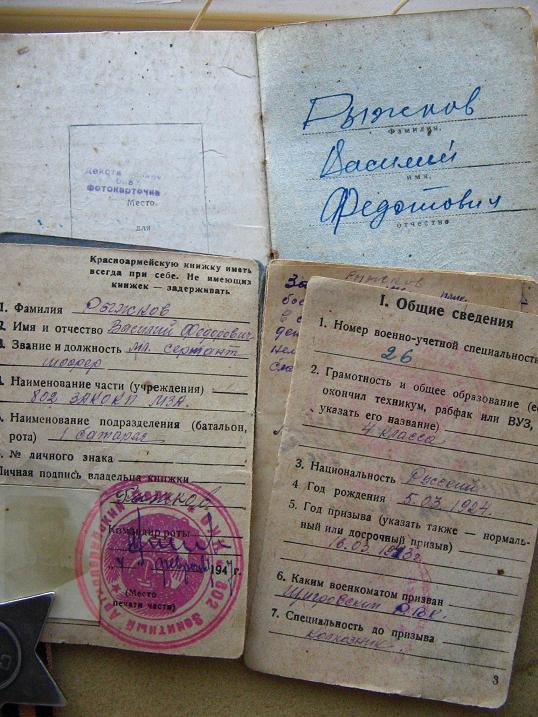 Рыжков
Фамилия,
Василий
имя,
Федотович
отчество
фотокарточки
Место
для
Красноармейскую книжку иметь
всегда при себе. Не имеющих
книжек — задерживать
1. Фамилия Рыжков
2. Имя и отчество Василий Федорович
3. Звание и должность мл. сержант
шофер
4. Наименование части (учреждения)
802 ЗАКАП МЗА.
5. Наименование подразделения (батальон,
рота) 1 батарея
6. № личного знака
Личная подпись владельца книжки
Рыжков
Командир роты
4 февраля 1947 г.
(Место
печати части)
802 Зенитный Артиллерийский
I. Общие сведения
1. Номер военно-учетной специальности
26
2. Грамотность и общее образование (ес
окончил техникум, рабфак или ВУЗ,
указать его название)
4 класса
3. Национальность Русский
4. Год рождения 5.03.1924.
5. Год призыва (указать также — нормаль-
ный или досрочный призыв)
6. Каким военкоматом призван
Щигровский РВК.
7. Специальность до призыва
колхозник.
3